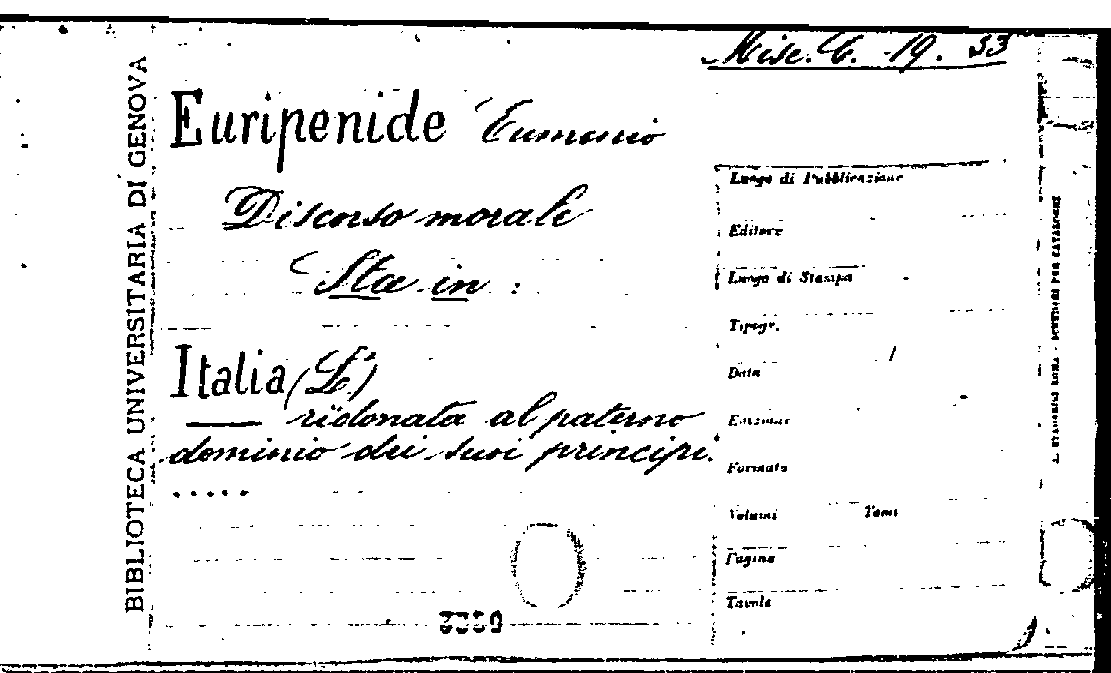 Misc. C. 19. 33
BIBLIOTECA UNIVERSITARIA DI GENOVA
Euripenide Eumenio
Discorso morale
Sta in :
Italia (L')
—— ridonata al paterno
dominio dei suoi principi.
.....
Luogo di Pubblicazione
Editore
Luogo di Stampa
Tipogr.
Data
Edizione
Formato
Volumi Tomi
Pagine
Tavole